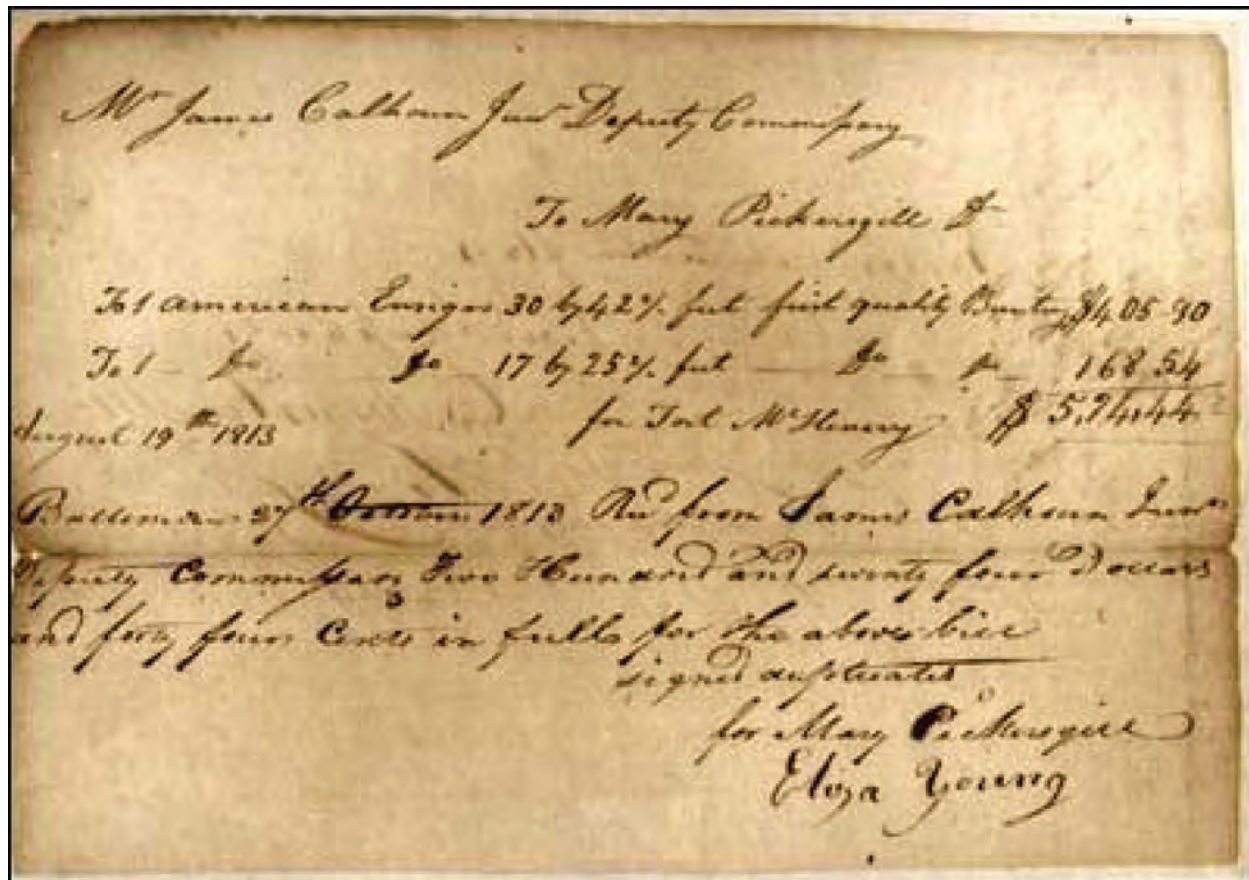 Mr James Calhoun Junr Deputy Commissary
To Mary Pickersgill Dr
To 1 American Ensign 30 by 42 feet first quality Bunting $405.90
To 1 do do 17 by 25 feet do do 168.54
for Fort McHenry $ 574.44
August 19th 1813
Baltimore 27th 1813 Recd from James Calhoun Junr
Deputy Commissary Hundred and seventy four Dollars
and forty four Cents in full for the above bill
signed duplicates
for Mary Pickersgill
Eliza Young